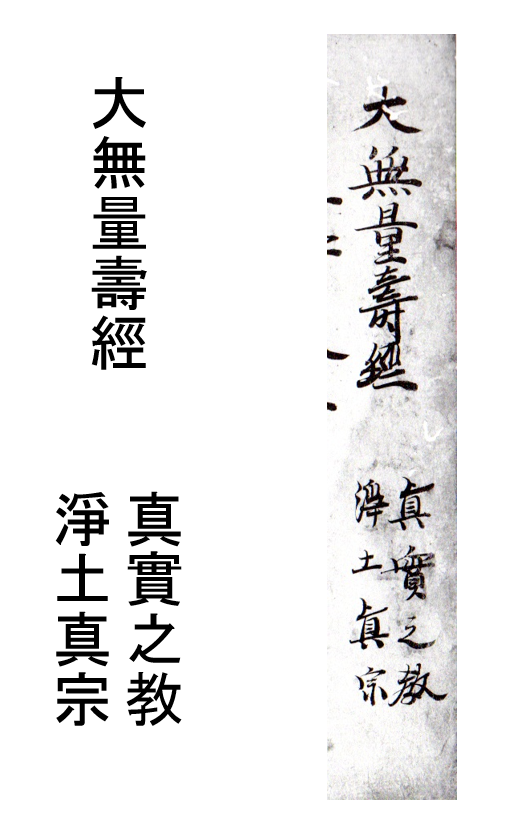 大無量壽經
真實之教
淨土真宗
大無量壽經
眞實之教
淨土眞宗